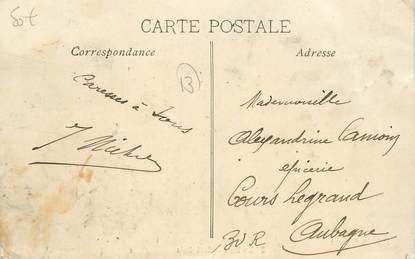 CARTE POSTALE
Correspondance
Adresse
13
Caresses à tous
J Michel
Mademoiselle
Alexandrine
épicerie
Cours Legrand
Aubagne
B d R